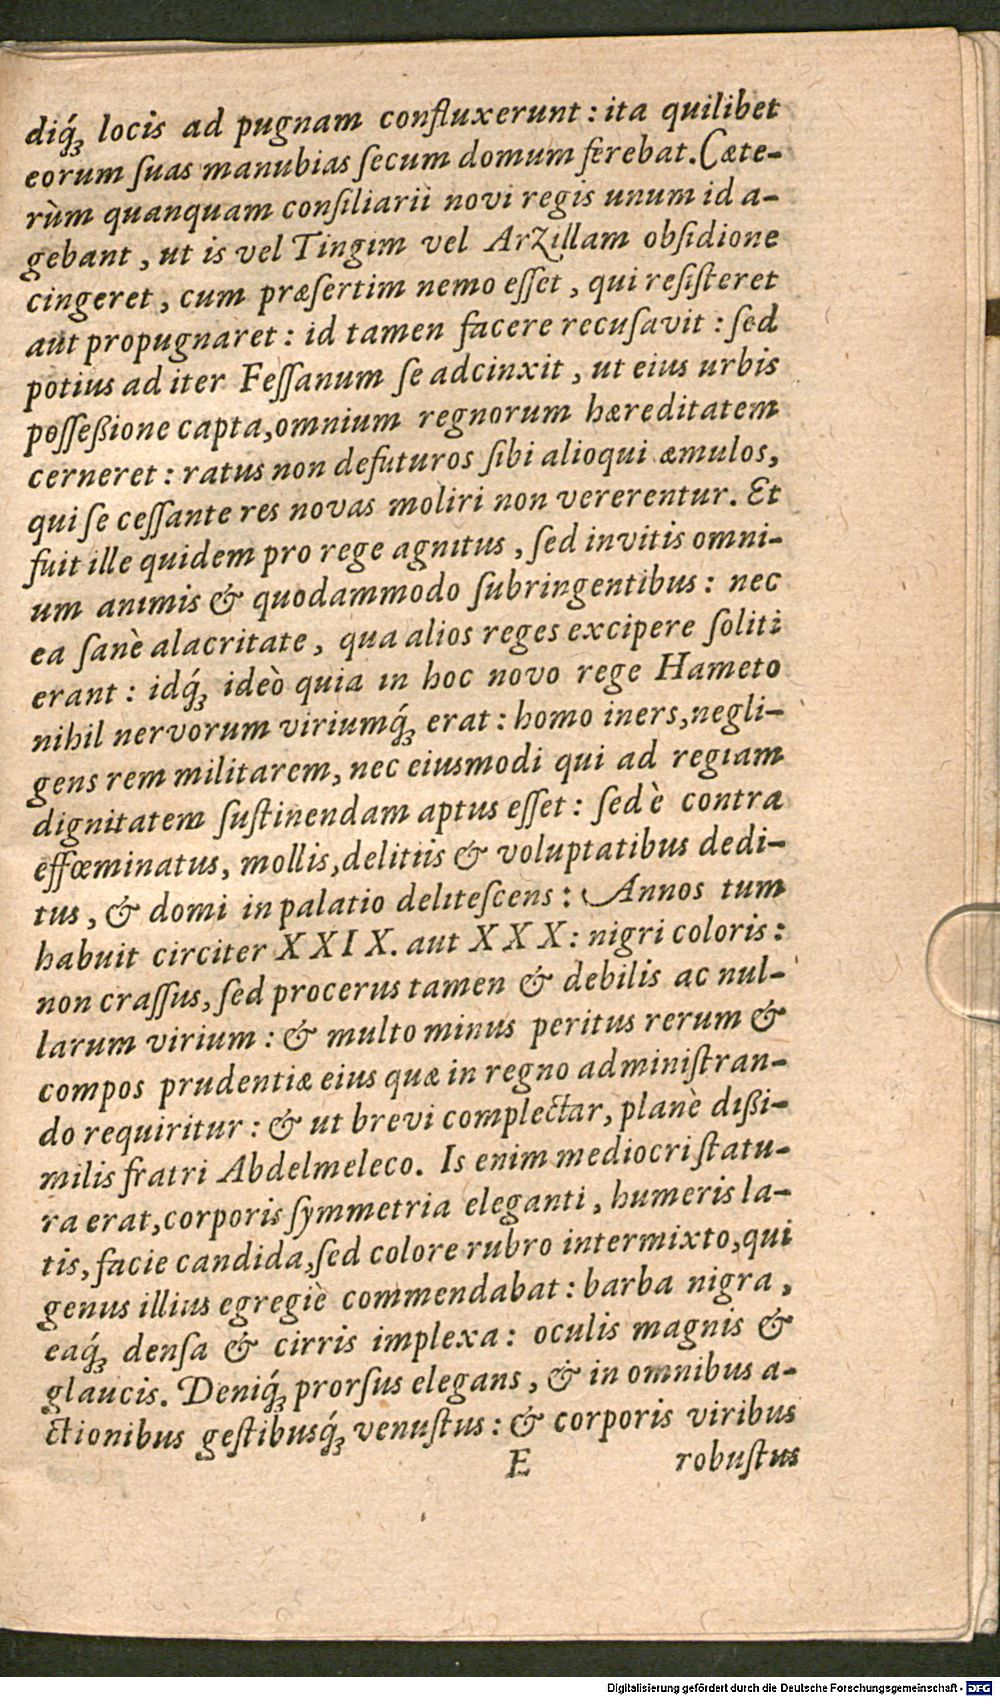 diq́ꝫ locis ad pugnam confluxerunt : ita quilibet
eorum ſuas manubias ſecum domum ferebat. Cæte-
rùm quanquam conſiliarii novi regis unum id a-
gebant , ut is vel Tingim vel Arzillam obſidione
cingeret , cum præſertim nemo eſſet , qui reſiſteret
aut propugnaret : id tamen facere recuſavit : ſed
potius ad iter Feſſanum ſe adcinxit , ut eius urbis
poſſeßione capta,omnium regnorum hæreditatem
cerneret : ratus non defuturos ſibi alioqui æmulos,
qui ſe ceſſante res novas moliri non vererentur. Et
fuit ille quidem pro rege agnitus , ſed invitis omni-
um animis & quodammodo ſubringentibus : nec
ea ſanè alacritate , qua alios reges excipere ſoliti
erant : idq́ꝫ ideò quia in hoc novo rege Hameto
nihil nervorum viriumq́ꝫ erat : homo iners,negli-
gens rem militarem, nec eiusmodi qui ad regiam
dignitatem ſuſtinendam aptus eſſet : ſed è contra
effœminatus, mollis,delitiis & voluptatibus dedi-
tus , & domi in palatio deliteſcens : Annos tum
habuit circiter XXIX. aut XXX : nigri coloris :
non craſſus, ſed procerus tamen & debilis ac nul-
larum virium : & multo minus peritus rerum &
compos prudentiæ eius quæ in regno adminiſtran-
do requiritur : & ut brevi complectar, planè dißi-
milis fratri Abdelmeleco. Is enim mediocri ſtatu-
ra erat,corporis ſymmetria eleganti , humeris la-
tis, facie candida,ſed colore rubro intermixto,qui
genus illius egregiè commendabat : barba nigra ,
eaq́ꝫ denſa & cirris implexa : oculis magnis &
glaucis. Deniq́ꝫ prorſus elegans , & in omnibus a-
ctionibus geſtibusq́ꝫ venuſtus : & corporis viribus
E robuſtus
Digitalisierung gefördert durch die Deutsche Forschungsgemeinschaft - DFG